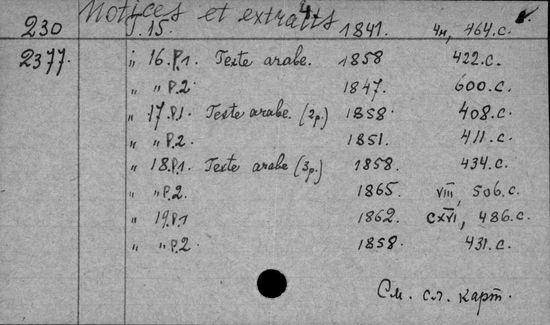 Notices et extraits
230 T. 15. 1841. 4н, 464.с.
2377. " 16.P.1. Texte arabe. 1858 422.с.
" " P.2. 1847. 600.с.
" 17.P.1 Texte arabe. (2p.) 1858. 408.с.
" " P.2. 1851. 411.с.
" 18.P.1. Texte arabe (3p.) 1858. 434.с.
" " P.2. 1865. VIII, 506.с.
" 19.P.1 1862. CXVI, 486.с.
" " P.2. 1858. 431.с.
См. сл. карт.